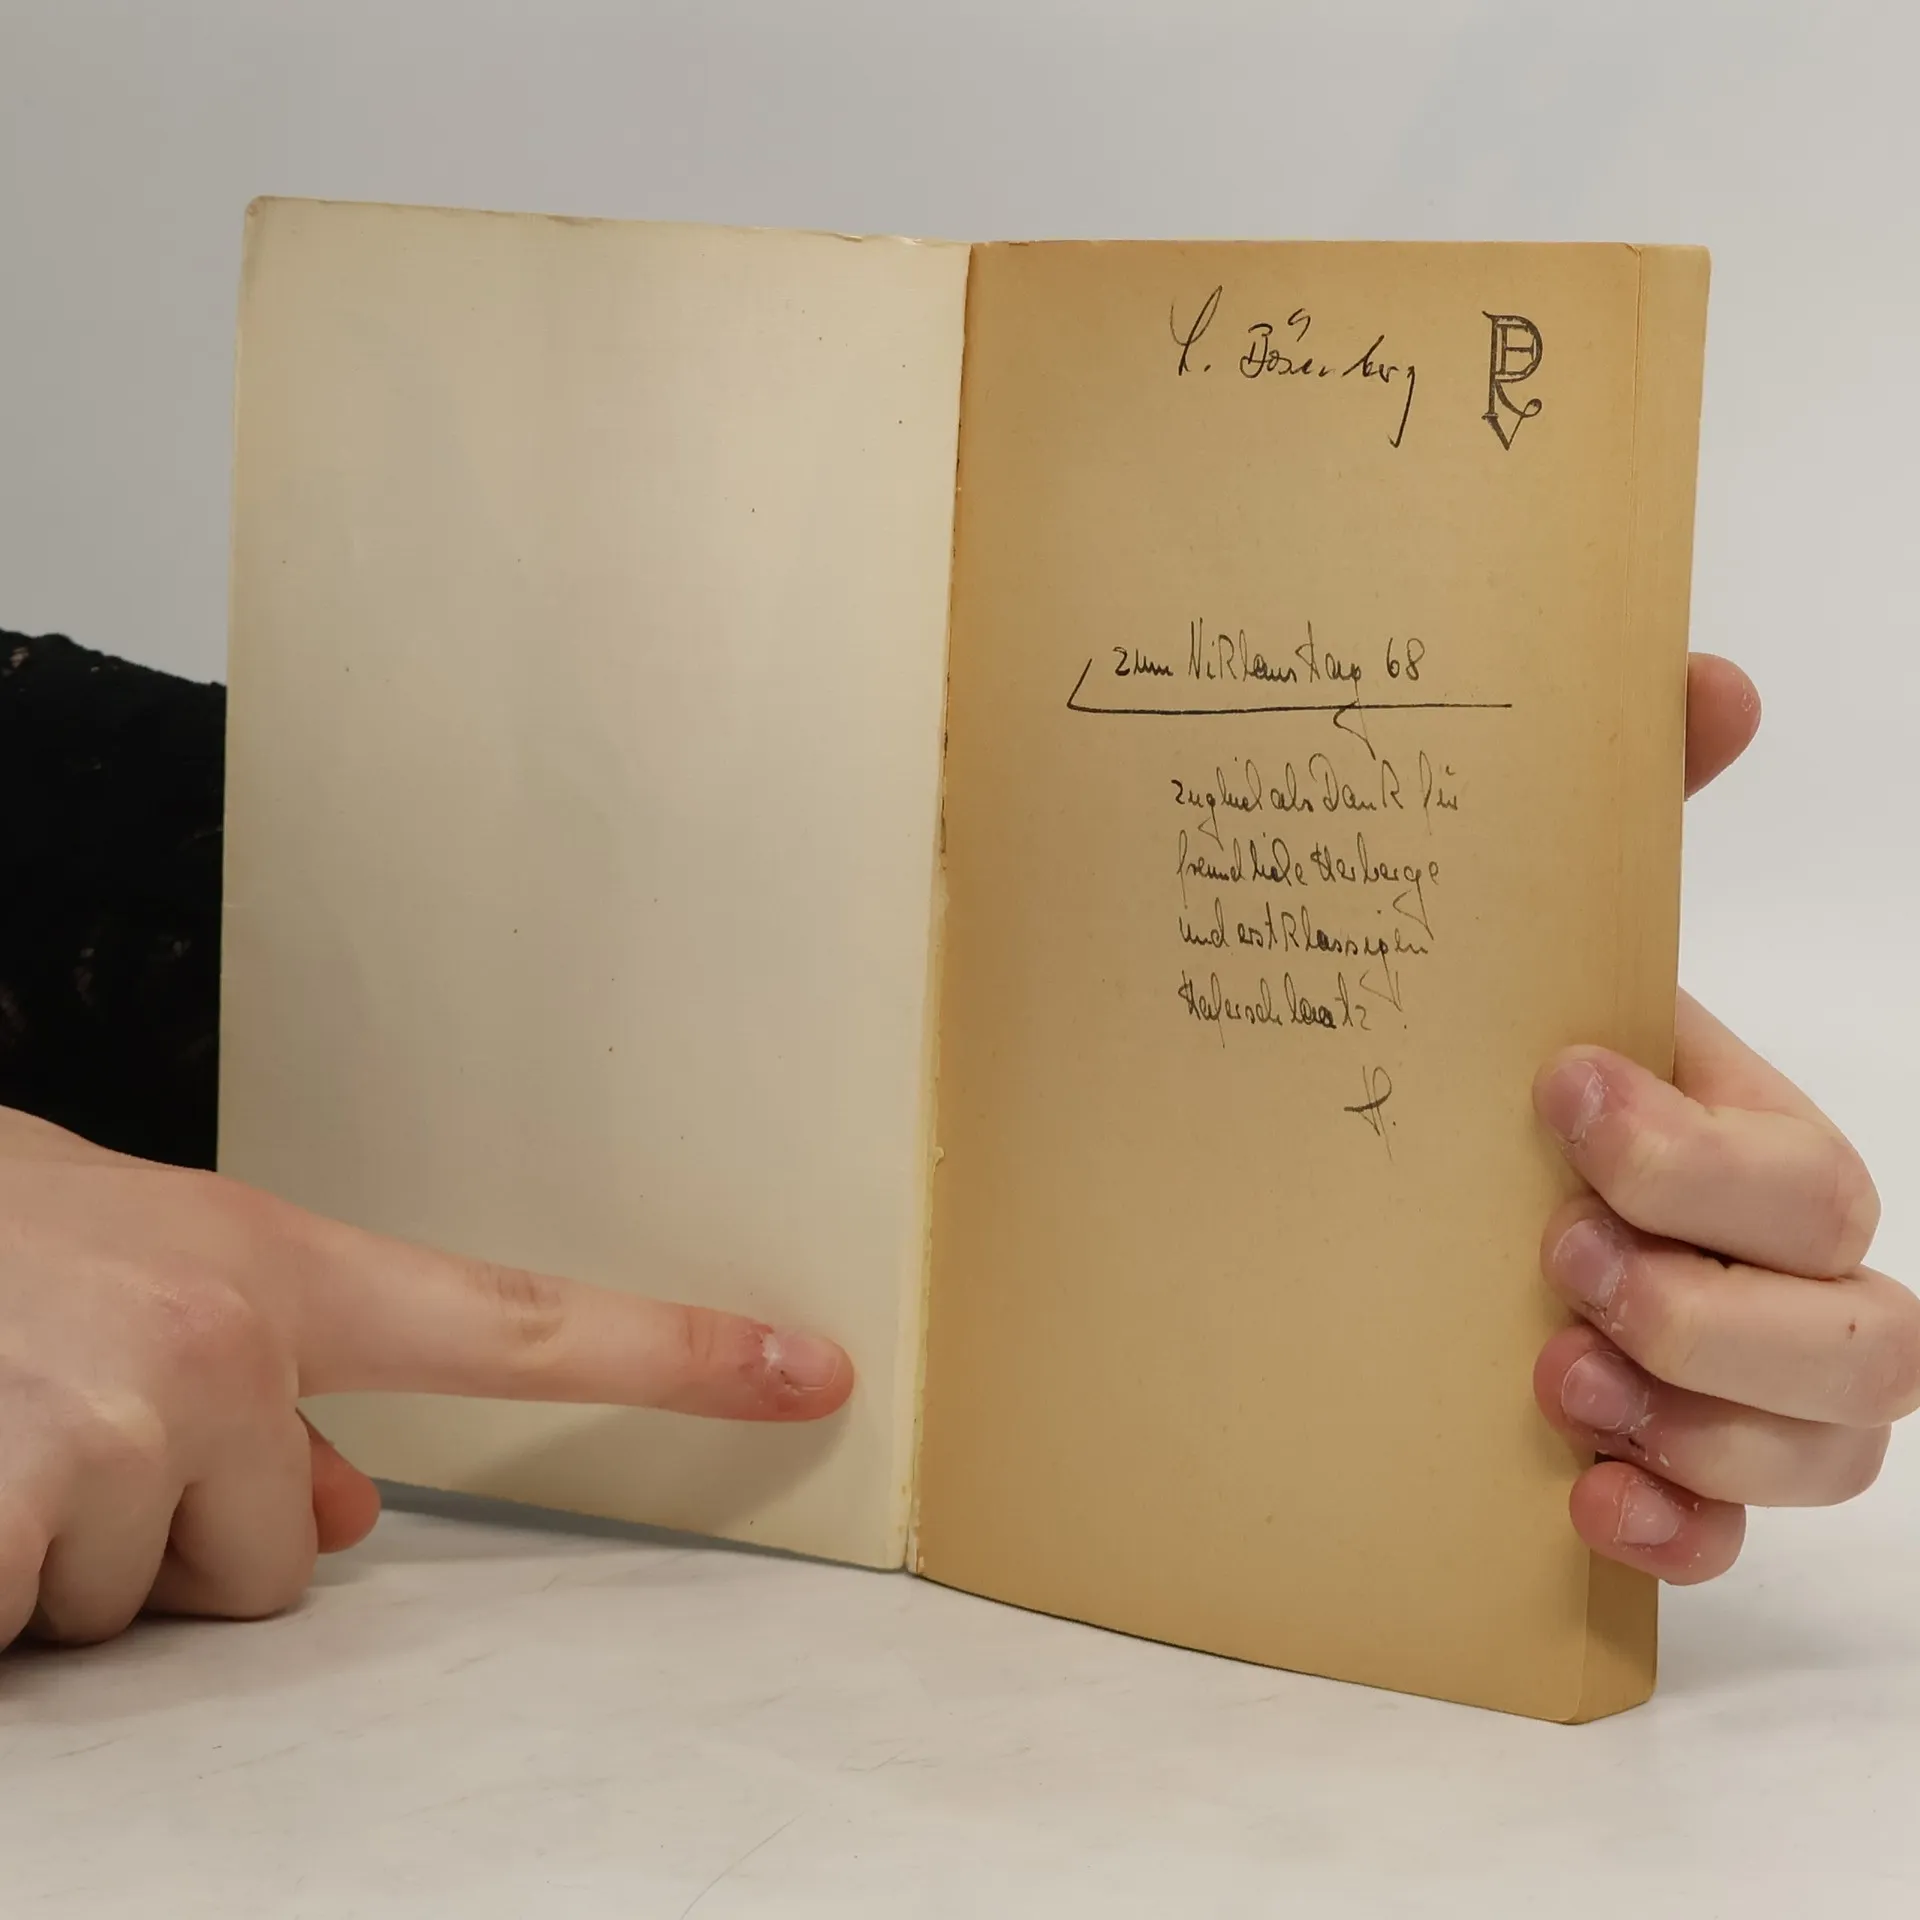 L. Bösenberg
zum Niklaustag 68
zugleich als Dank für
freundliche Herberge
und erstklassigen
Haferschlaatz!
H.